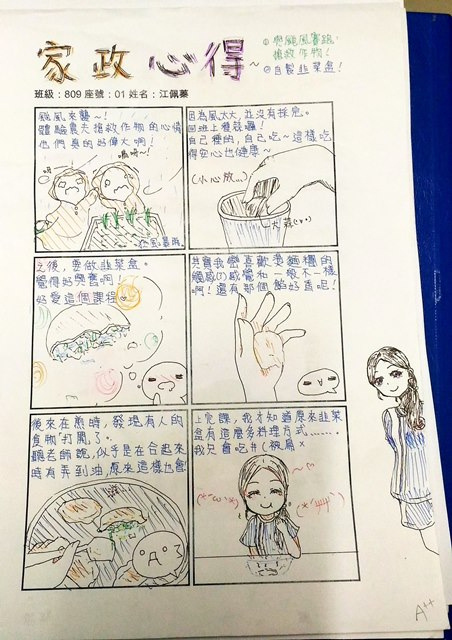 家政心得~
①與颱風賽跑,
搶救作物!
②自製韭菜盒!
班級:809 座號:01 姓名:江佩蓁
颱風來襲~!
體驗農夫搶救作物的心情
他們真的好偉大啊!
嗚呀~!
因為風太大,並沒有採完。
回班上種蒜囉!
自己種的,自己吃~這樣吃
得安心也健康~
(小心放...)
大蒜
之後,要做韭菜盒。
覺得好興奮啊!
好愛這個課程
其實我蠻喜歡燙麵糰的
觸感,感覺和一般不一樣
啊!還有那個餡好香呢!
後來在煎時,發現有人的
食物「打開了。
聽老師說,似乎是在合起來
時有弄到油,原來這樣也會!
上完課,我才知道原來韭菜
盒有這麼多料理方式......,
我只會吃#(被扁×
A++